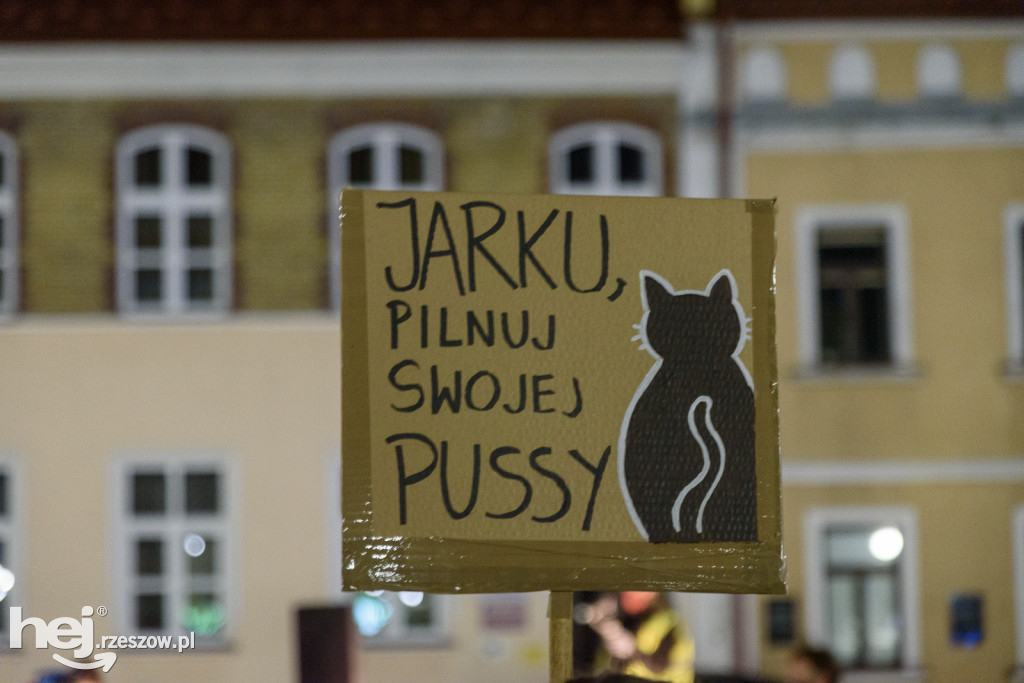 JARKU,
PILNUJ
SWOJEJ
PUSSY
hej®
.rzeszow.pl